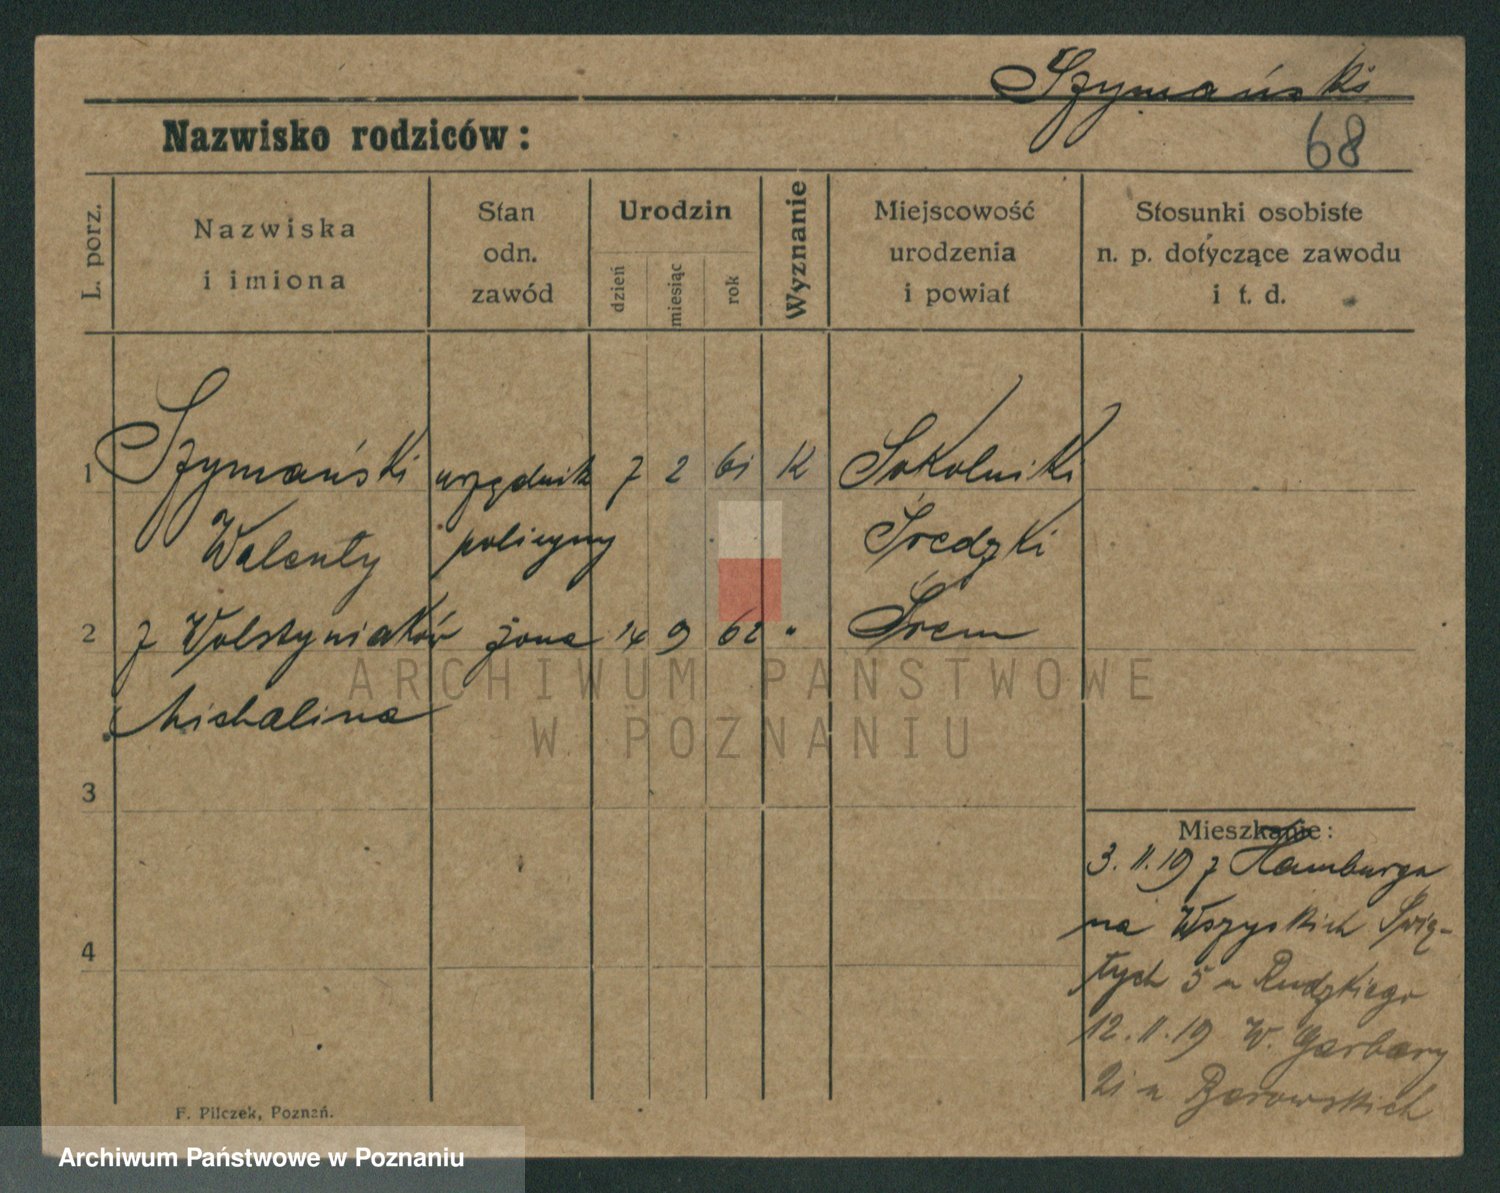 Szymański
68
Nazwisko rodziców:
L. porz.
Nazwiska
i imiona
Stan
odn.
zawód
Urodzin
dzień
miesiąc
rok
Wyznanie
Miejscowość
urodzenia
i powiat
Stosunki osobiste
n. p. dotyczące zawodu
i t. d.
1 Szymański urzędnik 7 2 61 K Sokolniki
Walenty policyjny Średzki
2 z Wolstyniaków żona 14 9 62 " Śrem
Michalina
3
4
Mieszkanie:
3.II.19 z Hamburga
na Wszystkich Świę-
tych 5 u Rudzkiego
12.II.19 W. Garbary
21 u Borowskich
F. Pilczek, Poznań.
ARCHIWUM PAŃSTWOWE
W POZNANIU
Archiwum Państwowe w Poznaniu